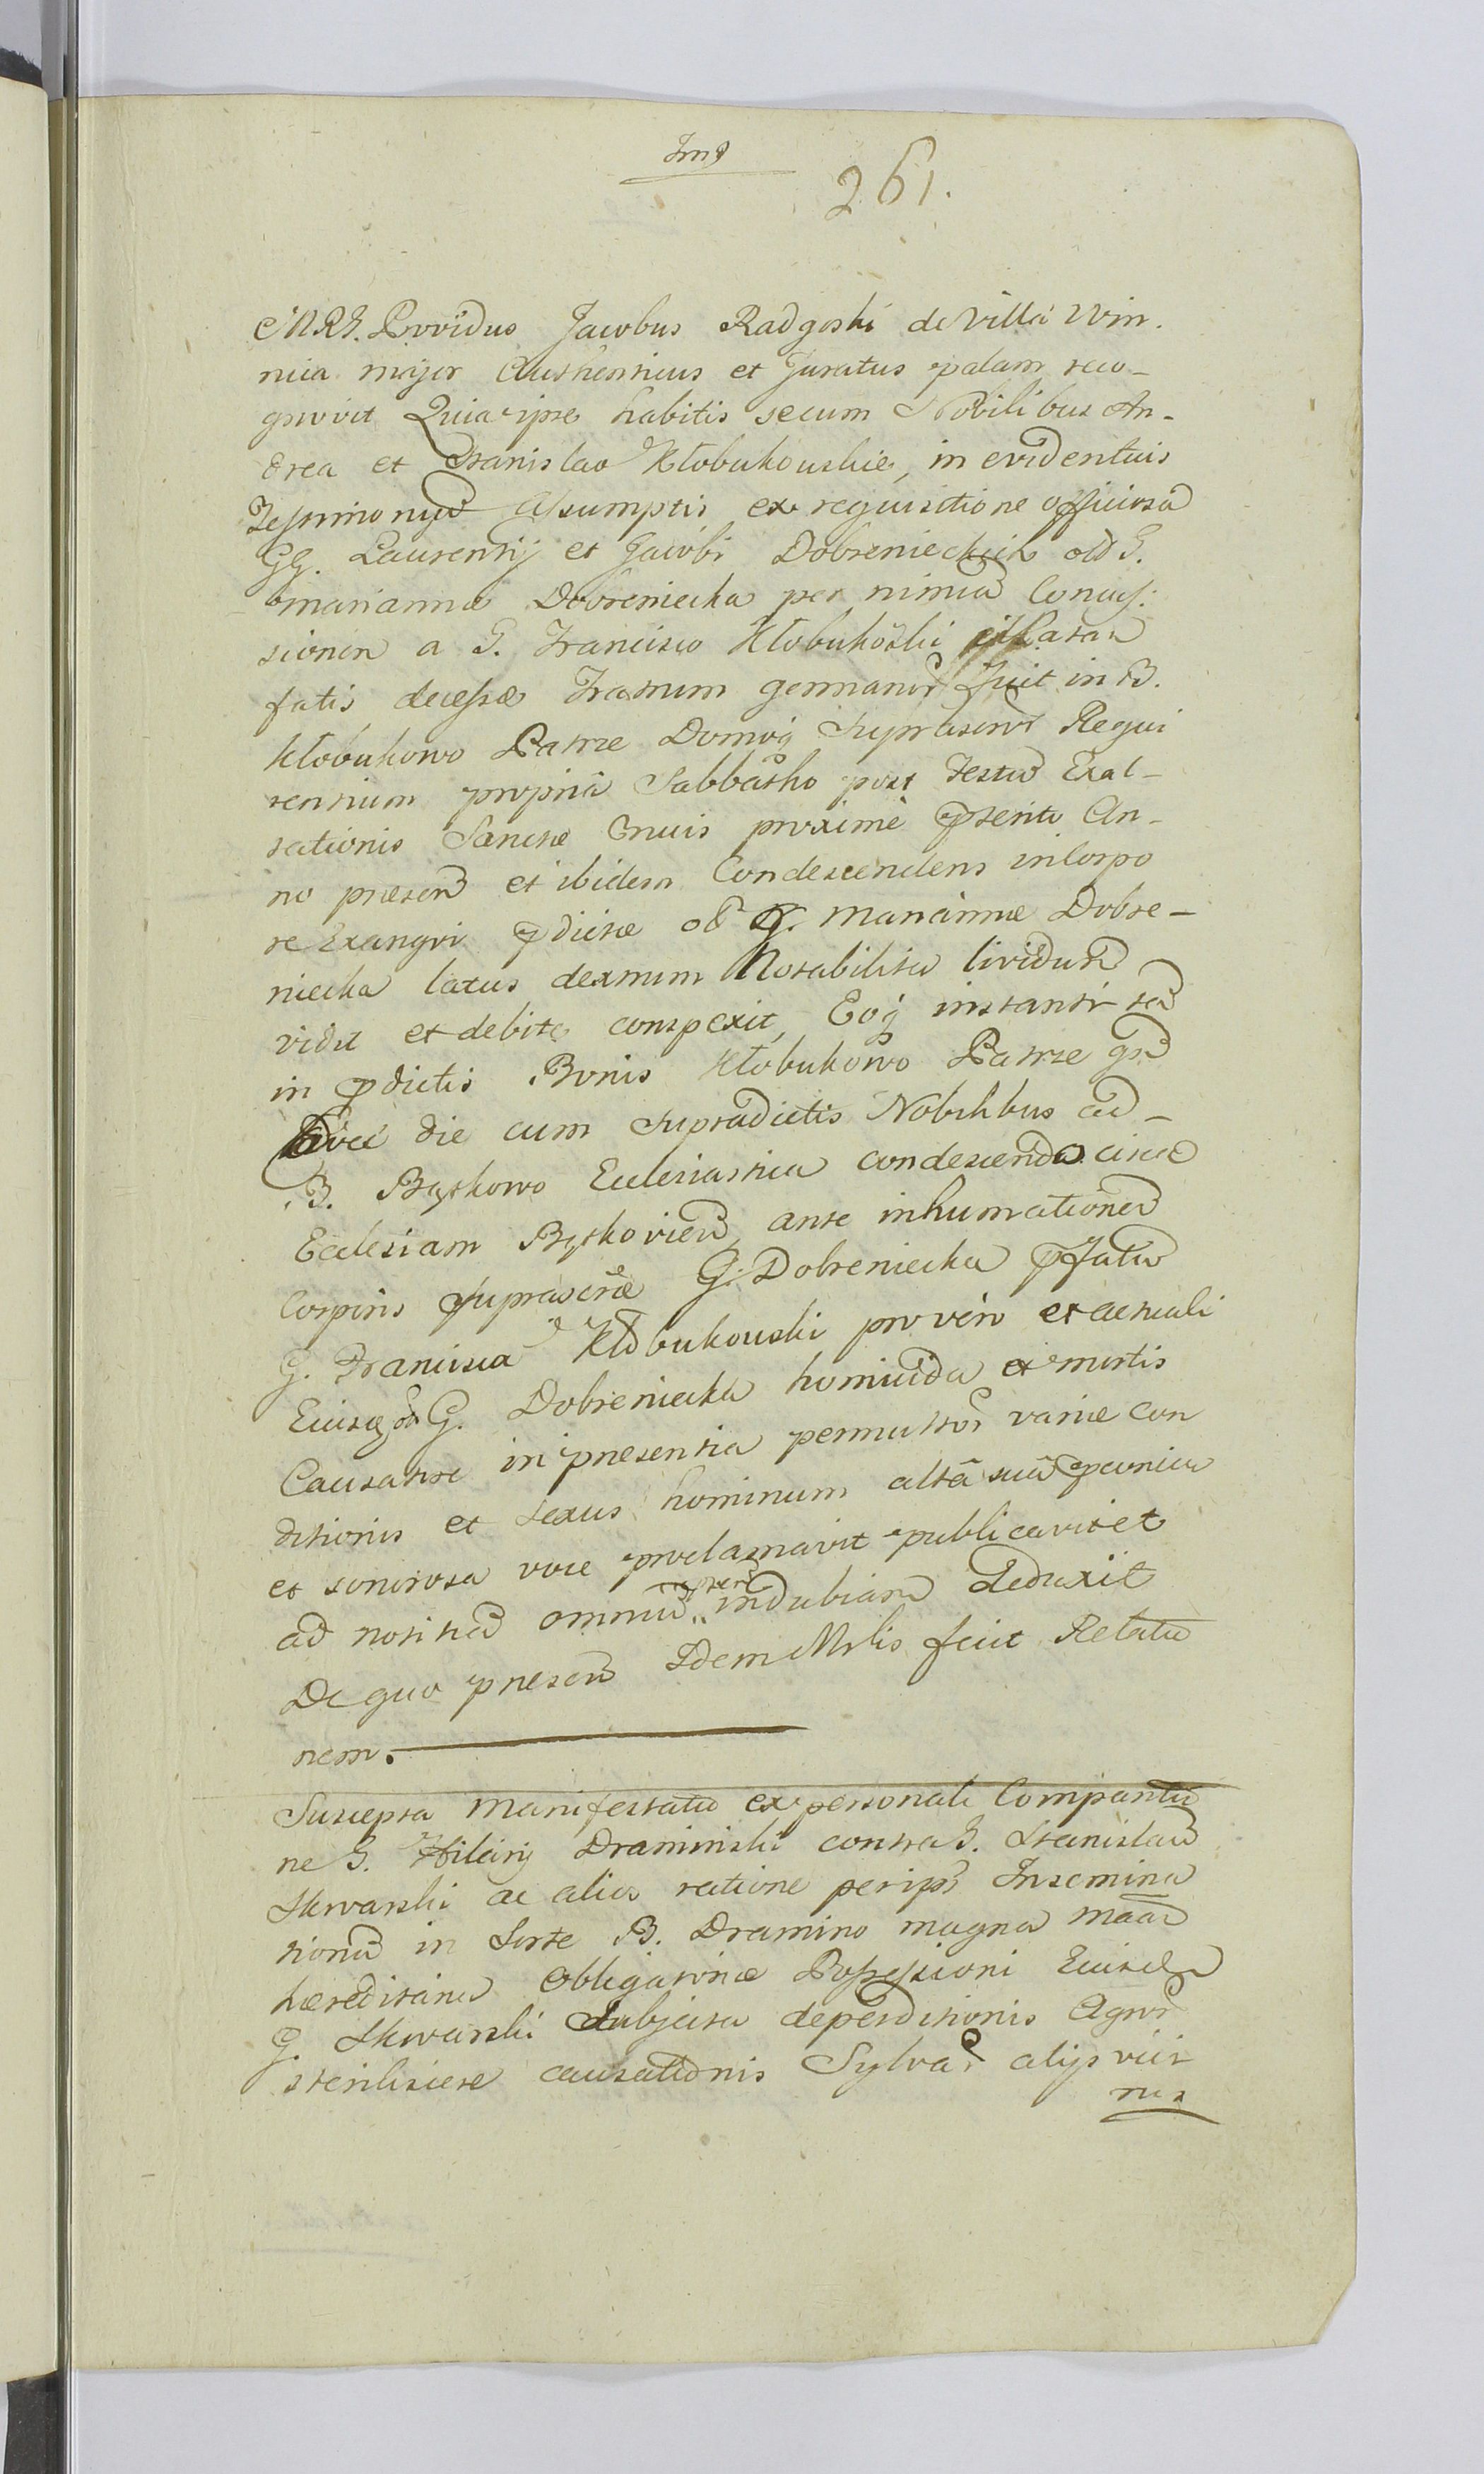 261.
MRG. Providus Jacobus Radgoski de Villa Win.
nica major Authenticus et Juratus palam reco-
gnovit Quia ipse habitis secum Nobilibus An-
drea et Stanislao Kłobukouskie, in evidentius
Testimonyũ assumptis ex requisitione officiosa
GG. Laurentij et Jacobi Dobrenieckich od G.
marianna Dobreniecka per nimiã Concus:
sionem a G. Francisco Kłobukoski
fatis decessæ Fratrum germanor̃ fuit in B.
Kłobukowo Patrze Domoq̃ suprascrõr Requi
rentium propria Sabbatho post Festũ Exal-
tationis Sanctæ Crucis proxime pterito An-
no presenti et ibidem Condescendens in Corpo
re Exangvi pdictæ od G. mariannæ Dobre-
niecka latus dextrum Notabiliter lividum
vidit et debite conspexit, Eoq̃ instanti
in pdictis Bonis Kłobukowo Patrze
die cum supradictis Nobilibus ad-
B. Bądkowo Ecclesiastica condescendo circa
Ecclesiam Bądkovien̄, ante inhumationem
Corporis suprascræ G. Dobreniecka pfatũ
G. Francisca Kłobukouski pro vero et actuali
Eiusdem G. Dobreniecka homicida et mortis
Causatore in presentia permultor̃ variæ con
ditionis et sexus hominum alta sua
et sonorosa voce proclamavit publicavit et
ad notitiã omniũ ptem̃ indubiam deduxit
De quo presen̄ Idem Mrlis fecit Relatio
nem.
Suscepta Manifestatio ex personali Comparitio
ne G. Hilarij Draminski contra G. Stanislaũ
Skwarski ac alios ratione per ipsõ Insemina
tioniũ in Sorte B. Dramino magna
hæreditaria obligatoriæ Possessioni Eiusdem
G. Skwarski subjecta deperditionis Agror̃
sterilisiere causationis Sylvar̃ alijs viir